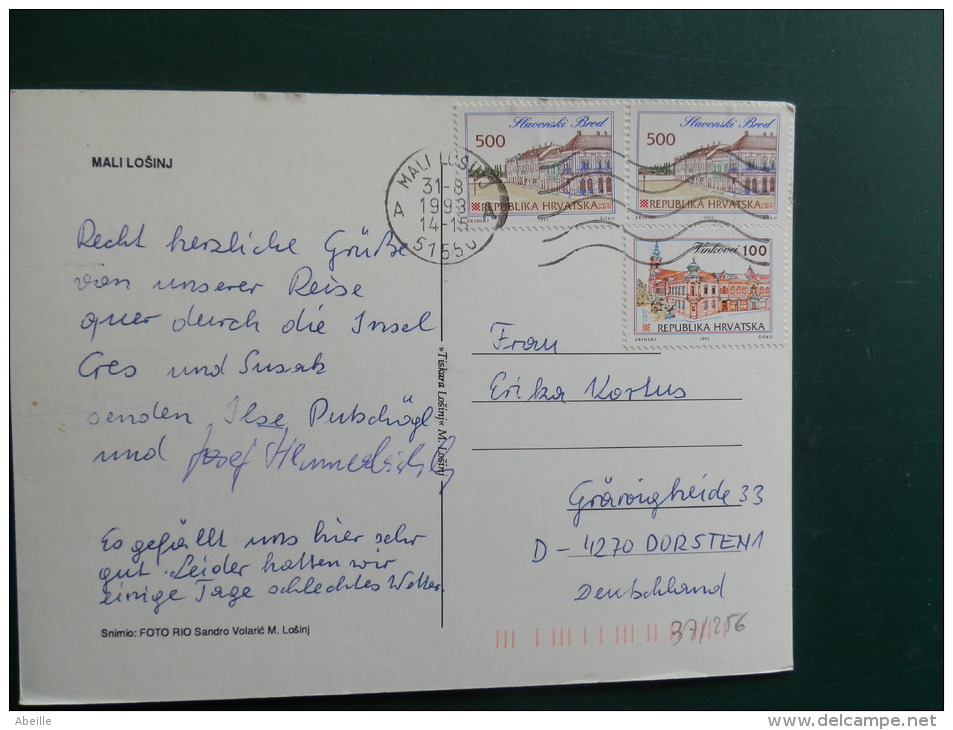 MALI LOŠINJ
Recht herzliche Grüße
von unserer Reise
quer durch die Insel
Cres und Susak
senden Ilse Putschögl
und Josef
Es gefällt uns hier sehr
gut. Leider hatten wir
einige Tage schlechtes Wetter.
Snimio: FOTO RIO Sandro Volarić M. Lošinj
»Tiskara Lošinj« M. Lošinj
MALI LOŠINJ
31-8
1993
14-15
A A
51550
Slavonski Brod
500
REPUBLIKA HRVATSKA HRD
ZRINSKI 1992 ŠIŠKO
Slavonski Brod
500
REPUBLIKA HRVATSKA HRD
ZRINSKI 1992 ŠIŠKO
Vinkovci 100
REPUBLIKA HRVATSKA
ZRINSKI 1992 ŠIŠKO
Frau
Erika Kortus
33
D-4270 DORSTEN 1
Deutschland
37/256
Abeille
www.delcampe.net